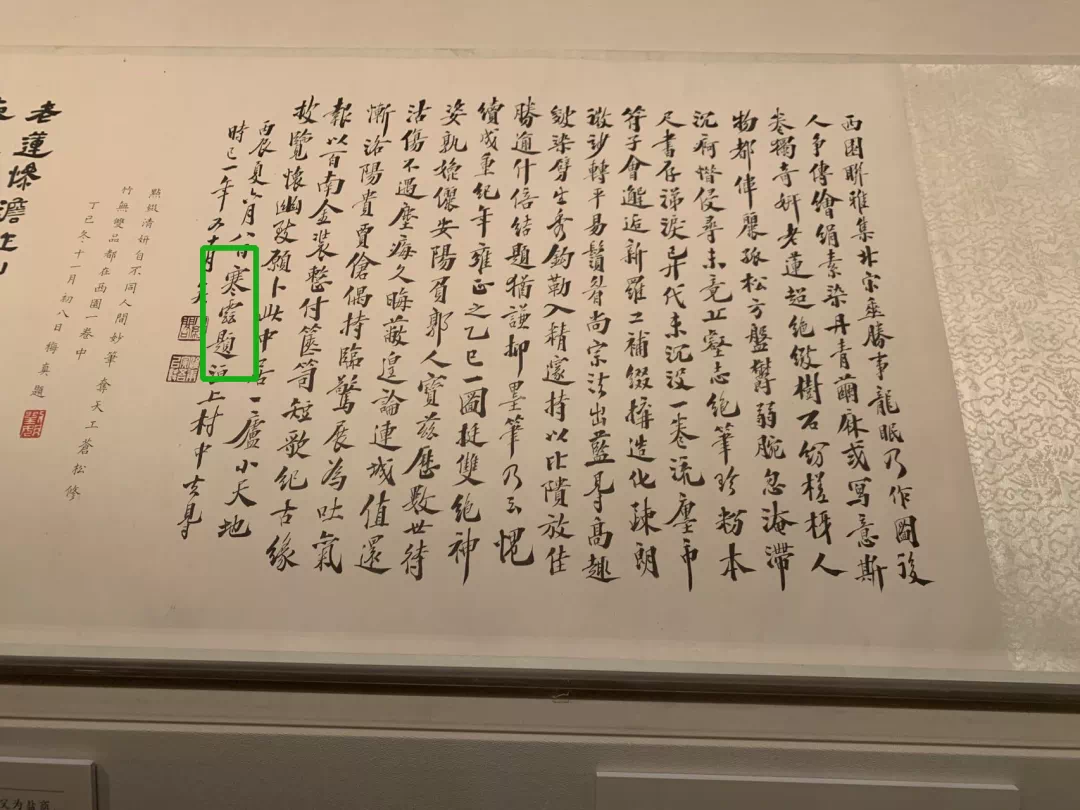 西園盼雅集北宋垂勝事龍眠乃作圖後
人爭傳繪絹素染丹青繭麻或寫意斯
卷獨奇妍老蓮超絕樹石槎枒人
物都偉麗孤松方盤鬱弱腕忽淹滯
沉痾惜侵尋未竟丘壑志絕筆珍粉本
尺書存涕淚異代未沉沒一卷流廛市
符子會邂逅新羅工補綴摶造化疎朗
微妙轉平易鬚眉尚宗法出藍尋高趣
皴染劈生秀鈎勒入精邃持以比隤放佳
勝逾什倍結題猶謙抑墨筆乃云愧
續成重紀年雍正之乙巳一圖挺雙絕神
姿孰婉儷安陽有郭人寶茲歷數世待
沽傷不遇塵海久晦蔽遑論連城值還
慚洛陽貴賈傖偶持臨驚展為吐氣
報以百南金裝整付篋笥短歌紀古緣
披覽懷幽致願卜此中居一廬小天地
丙辰夏六月八日寒雲題洹上村中去見
時已一年又十月矣
點綴清妍自不同人間妙筆奪天工蒼松修
竹無雙品都在西園一卷中
丁巳冬十一月初八日梅真題
老蓮